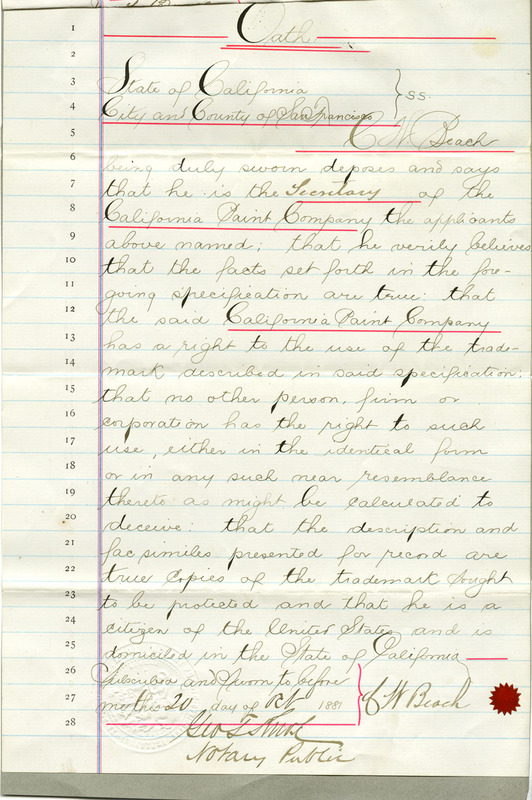 1 Oath
2
3 State of California } ss.
4 City and County of San Francisco
5 C N. Beach
6 being duly sworn deposes and says
7 that he is the Secretary of the
8 California Paint Company the applicants
9 above named; that he verily believes
10 that the facts set forth in the fore-
11 going specification are true: that
12 the said California Paint Company
13 has a right to the use of the trade-
14 mark described in said specification;
15 that no other person, firm or
16 corporation has the right to such
17 use, either in the identical form
18 or in any such near resemblance
19 thereto as might be calculated to
20 deceive: that the description and
21 fac similes presented for record are
22 true copies of the trademark sought
23 to be protected and that he is a
24 citizen of the United States and is
25 domiciled in the State of California
26 Subscribed and Sworn to before
27 me this 20 day of Oct 1881 } C W Beach
28 Geo T
Notary Public